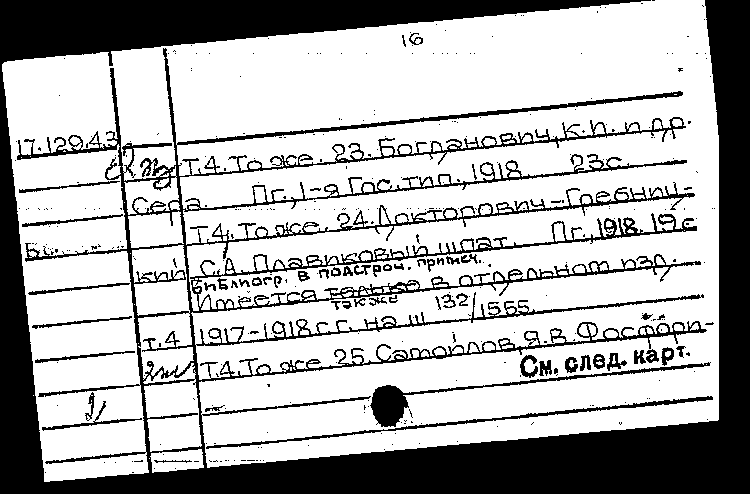 16
17.129.4.3
2 экз Т.4. То же. 23. Богданович, К.П. и др.
Сера. Пг., 1-я Гос. тип., 1918 23с.
Т.4. То же. 24. Докторович-Гребниц-
кий С.А. Плавиковый шпат. Пг., 1918. 19с
библиогр. в подстроч. примеч.
Имеется только в отдельном изд.
также
т.4 1917-1918 г.г. на Ш 132/1565.
Т.4. То же 25. Самойлов, Я.В. Фосфори-
См. след. карт.